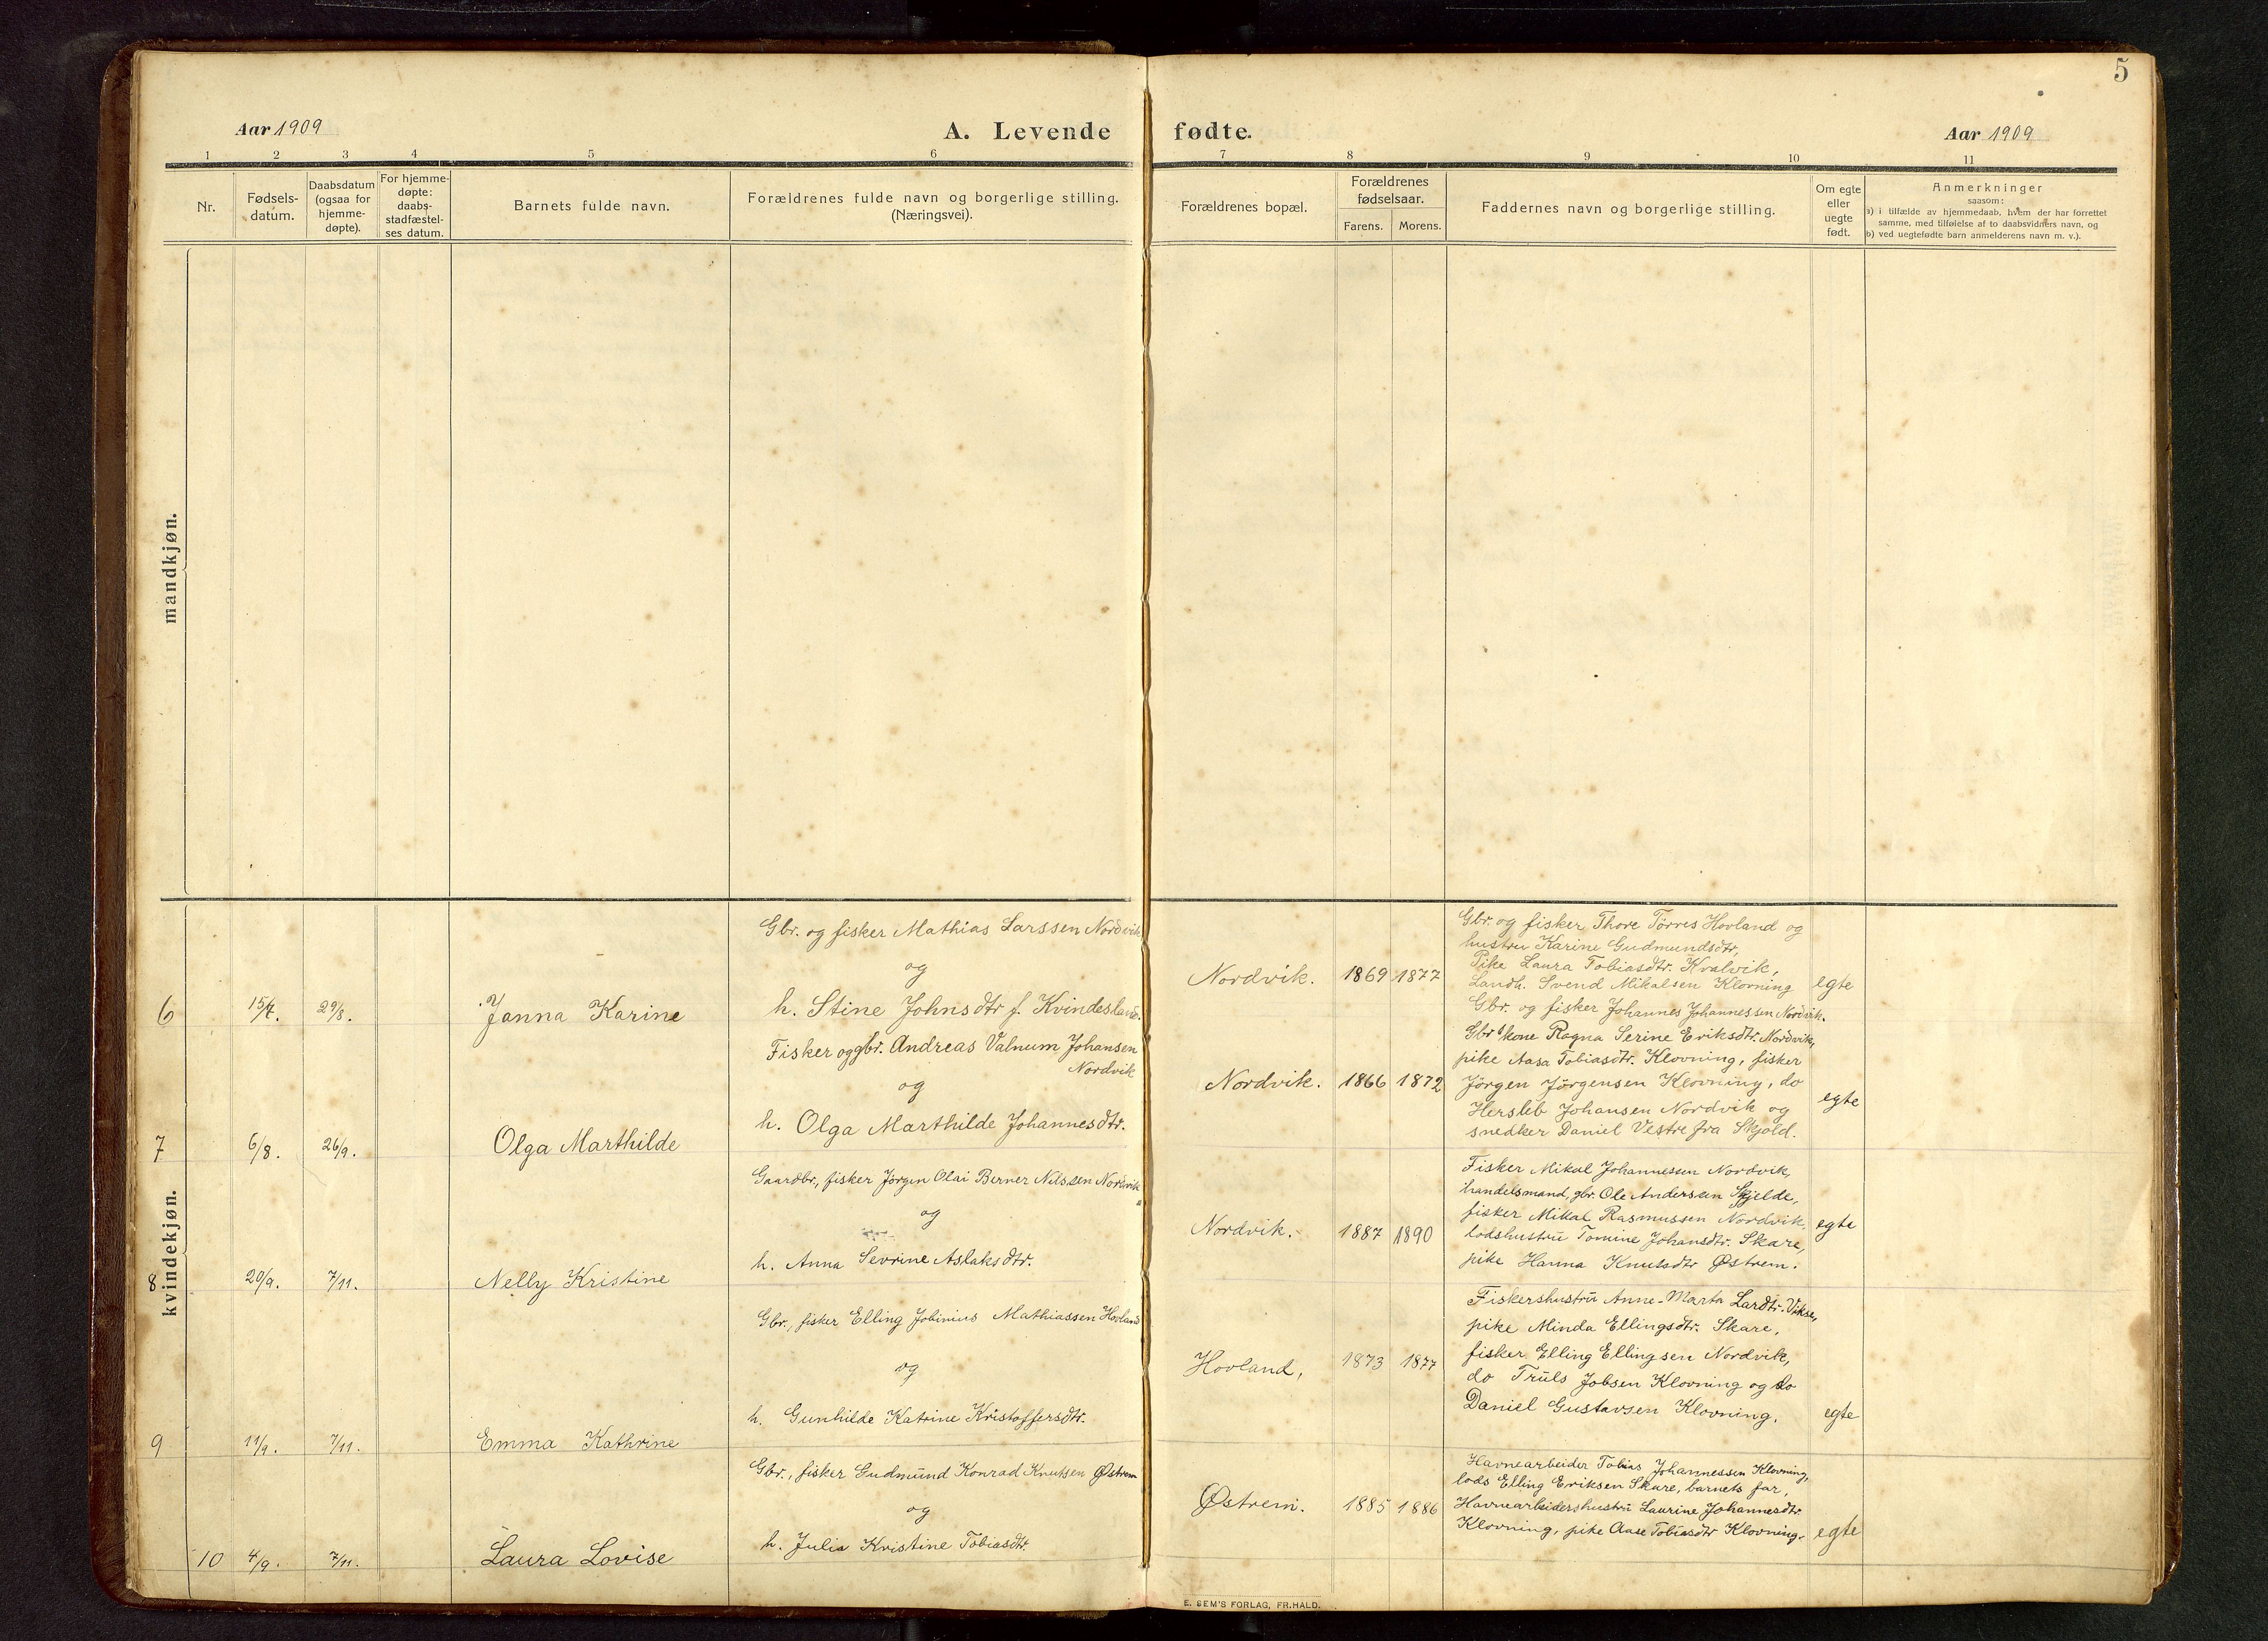 5
Aar 1909
A. Levende fødte.
Aar 1909
1 2 3 4 5 6 7 8 9 10 11
Nr.
Fødsels-
datum.
Daabsdatum
(ogsaa for
hjemme-
døpte).
For hjemme-
døpte:
daabs-
stadfæstel-
ses datum.
Barnets fulde navn.
Forældrenes fulde navn og borgerlige stilling.
(Næringsvei).
Forældrenes bopæl.
Forældrenes
fødselsaar.
Farens. Morens.
Faddernes navn og borgerlige stilling.
Om egte
eller
uegte
født.
Anmerkninger
saasom:
a) i tilfælde av hjemmedaab, hvem der har forrettet
samme, med tilføielse af to daabsvidners navn, og
b) ved uegtefødte barn anmelderens navn m. v.).
mandkjøn.
kvindekjøn.
6 15/7. 29/8. Janna Karine
Gbr. og fisker Mathias Larssen Nordvik
og
h. Stine Johnsdtr f. Kvindesland.
Nordvik. 1869 1877
Gbr. og fisker Thore Tørres Hovland og
hustru Karine Gudmundsdtr,
Pike Laura Tobiasdtr. Kvalvik,
Landh. Svend Mikalsen Klovning
Gbr. og fisker Johannes Johannessen Nordvik.
egte
7 6/8. 26/9. Olga Marthilde
Fisker og gbr. Andreas Valnum Johansen
Nordvik
og
h. Olga Marthilde Johannesdtr.
Nordvik. 1866 1872
Gbr kone Ragna Serine Eriksdtr. Nordvik,
pike Aasa Tobiasdtr. Klovning, fisker
Jørgen Jørgensen Klovning, do
Hersleb Johansen Nordvik og
snedker Daniel Vestre fra Skjold.
egte
8 20/9. 7/11. Nelly Kristine
Gaardbr., fisker Jørgen Olai Berner Nilssen Nordvik
og
h. Anna Sevrine Aslaksdtr.
Nordvik. 1887 1890
Fisker Mikal Johannessen Nordvik,
handelsmand, gbr. Ole Anderssen Skjelde,
fisker Mikal Rasmussen Nordvik,
lodshustru Tomine Johansdtr. Skare,
pike Hanna Knutsdtr Østrem.
egte
9 11/9. 7/11. Emma Kathrine
Gbr., fisker Elling Jobinius Mathiassen Hovland
og
h. Gunhilde Katrine Kristoffersdtr.
Hovland, 1873 1877
Fiskershustru Anne-Marta Larsdtr. Vikse,
pike Minda Ellingsdtr. Skare,
fisker Elling Ellingsen Nordvik,
do Truls Jobsen Klovning og do
Daniel Gustavsen Klovning.
egte
10 4/9. 7/11. Laura Lovise
Gbr., fisker Gudmund Konrad Knutsen Østrem
og
h. Julia Kristine Tobiasdtr.
Østrem. 1885 1886
Havnearbeider Tobias Johannessen Klovning,
lods Elling Eriksen Skare, barnets far,
Havnearbeidershustru Laurine Johannesdtr
Klovning, pike Aase Tobiasdtr Klovning.
egte
E. SEM'S FORLAG, FR.HALD.